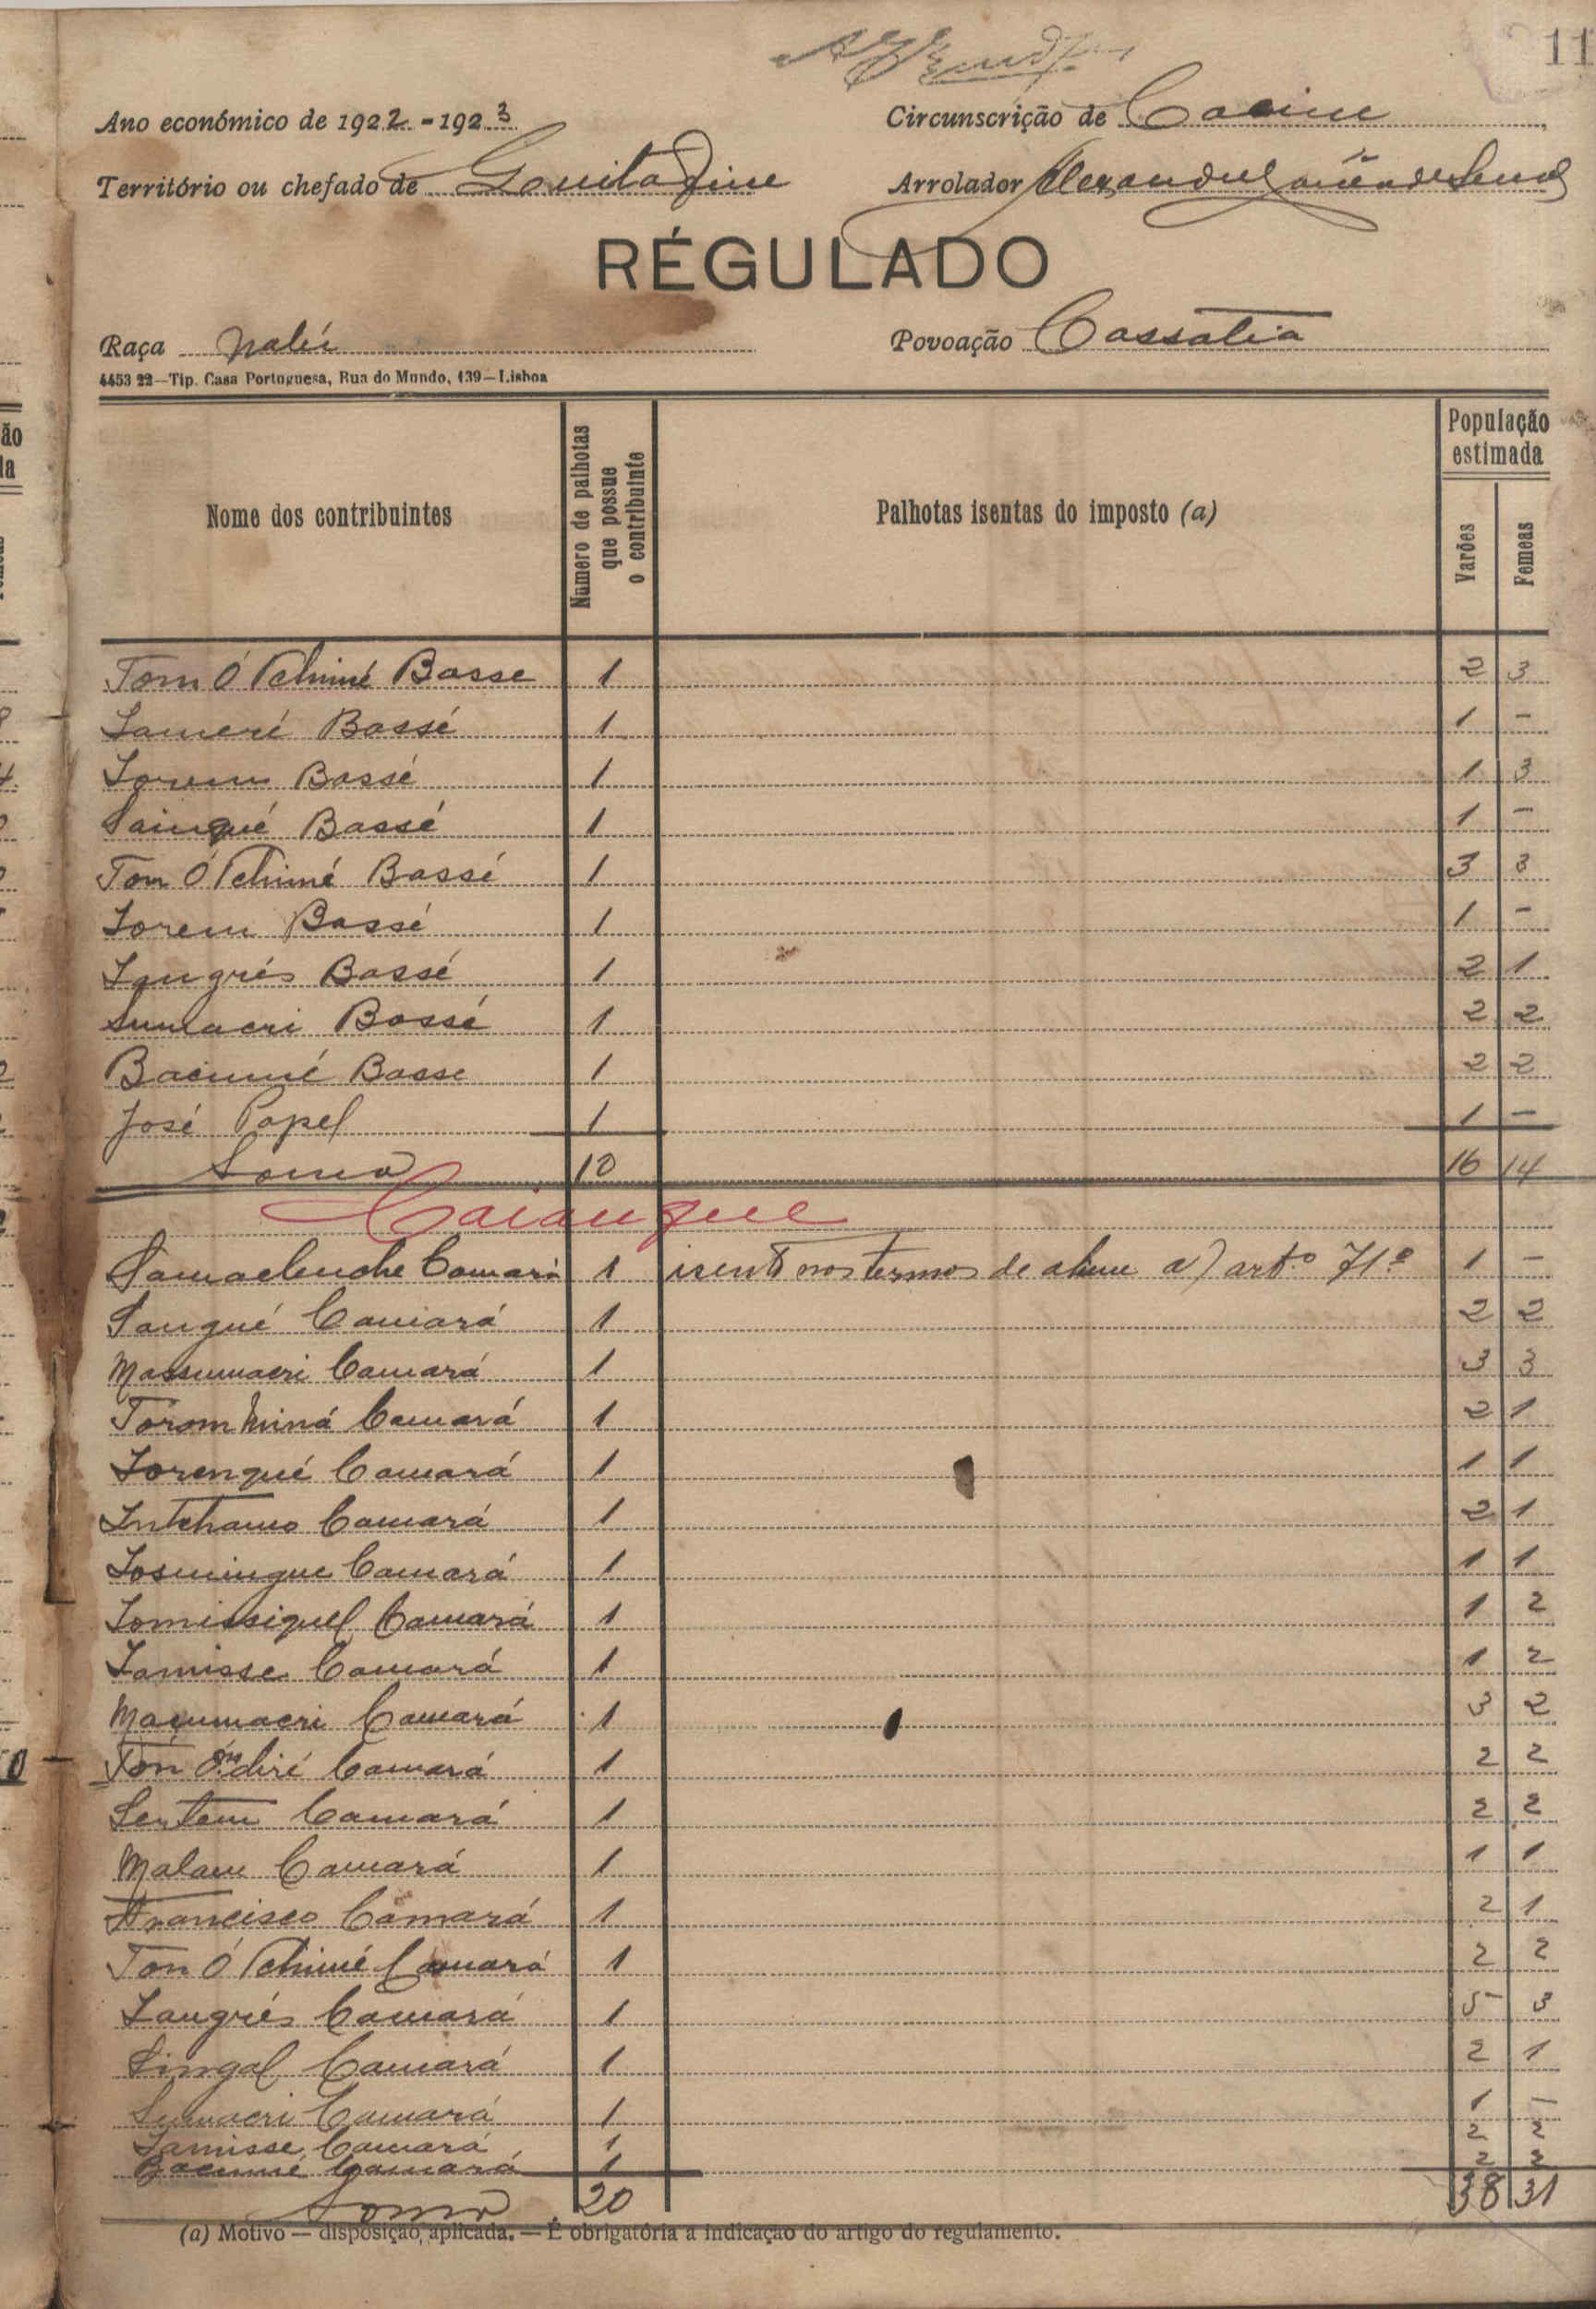 11
Ano económico de 1922-1923 Circunscrição de Cacine
Território ou chefado de Guitafine Arrolador Alexandre
RÉGULADO
Raça Nalú Povoação Cassatia
4453 22—Tip. Casa Portuguesa, Rua do Mundo, 139—Lisboa
Nome dos contribuintes Numero de palhotas que possue o contribuinte Palhotas isentas do imposto (a) População estimada Varões Femeas
Tom Ó Tchimé Basse 1 2 3
Lameré Bassé 1 1 -
Lorem Bassé 1 1 3
Sainqué Bassé 1 1 -
Ton Ó Tchimé Bassé 1 3 3
Lorem Bassé 1 1 -
Langriés Bassé 1 2 1
Sumacri Bassé 1 2 2
Bacimé Basse 1 2 2
José Papel 1 1 -
Soma 10 16 14
Caianque
Camará 1 isento nos termos de alinea a) artº 71º 1 -
Sangué Camará 1 2 2
Massumacri Camará 1 3 3
Torom Miná Camará 1 2 1
Lorenqué Camará 1 1 1
Intchamo Camará 1 2 1
Losmingue Camará 1 1 1
Lomissiquel Camará 1 1 2
Lamisse Camará 1 1 2
Maçumacri Camará 1 3 2
Ton Ón diré Camará 1 2 2
Sentem Camará 1 2 2
Malam Camará 1 1 1
Francisco Camará 1 2 1
Ton Ó Tchimé Camará 1 2 2
Langriés Camará 1 5 3
Singal Camará 1 2 1
Sumacri Camará 1 1 -
Lamisse Camará 1 2 2
Bacimé Camará 1 2 2
Soma 20 38 31
(a) Motivo — disposição aplicada. — É obrigatória a indicação do artigo do regulamento.